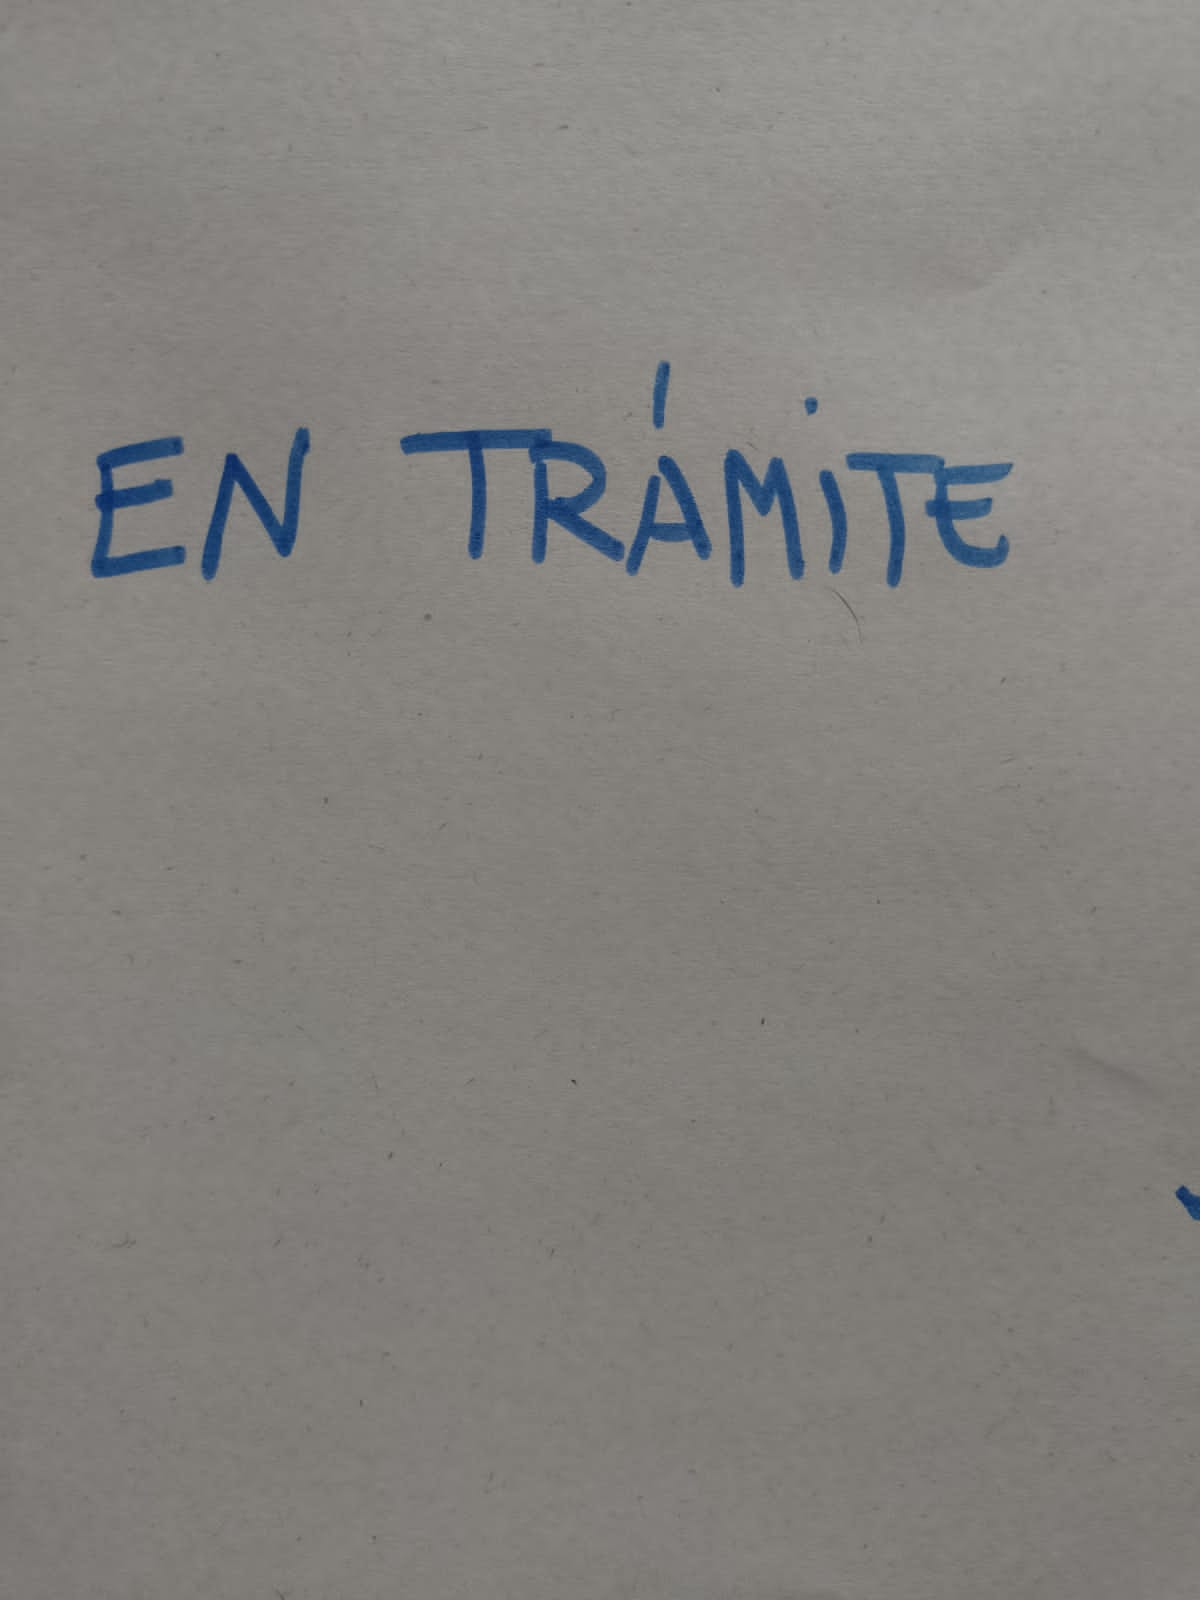 EN TRÁMITE